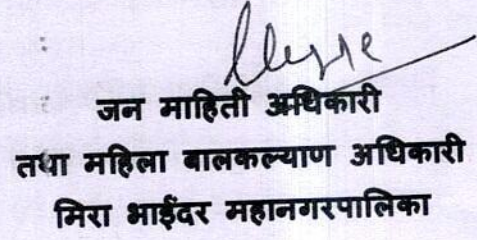 जन माहिती अधिकारी
तथा महिला बालकल्याण अधिकारी
मिरा भाईंदर महानगरपालिका